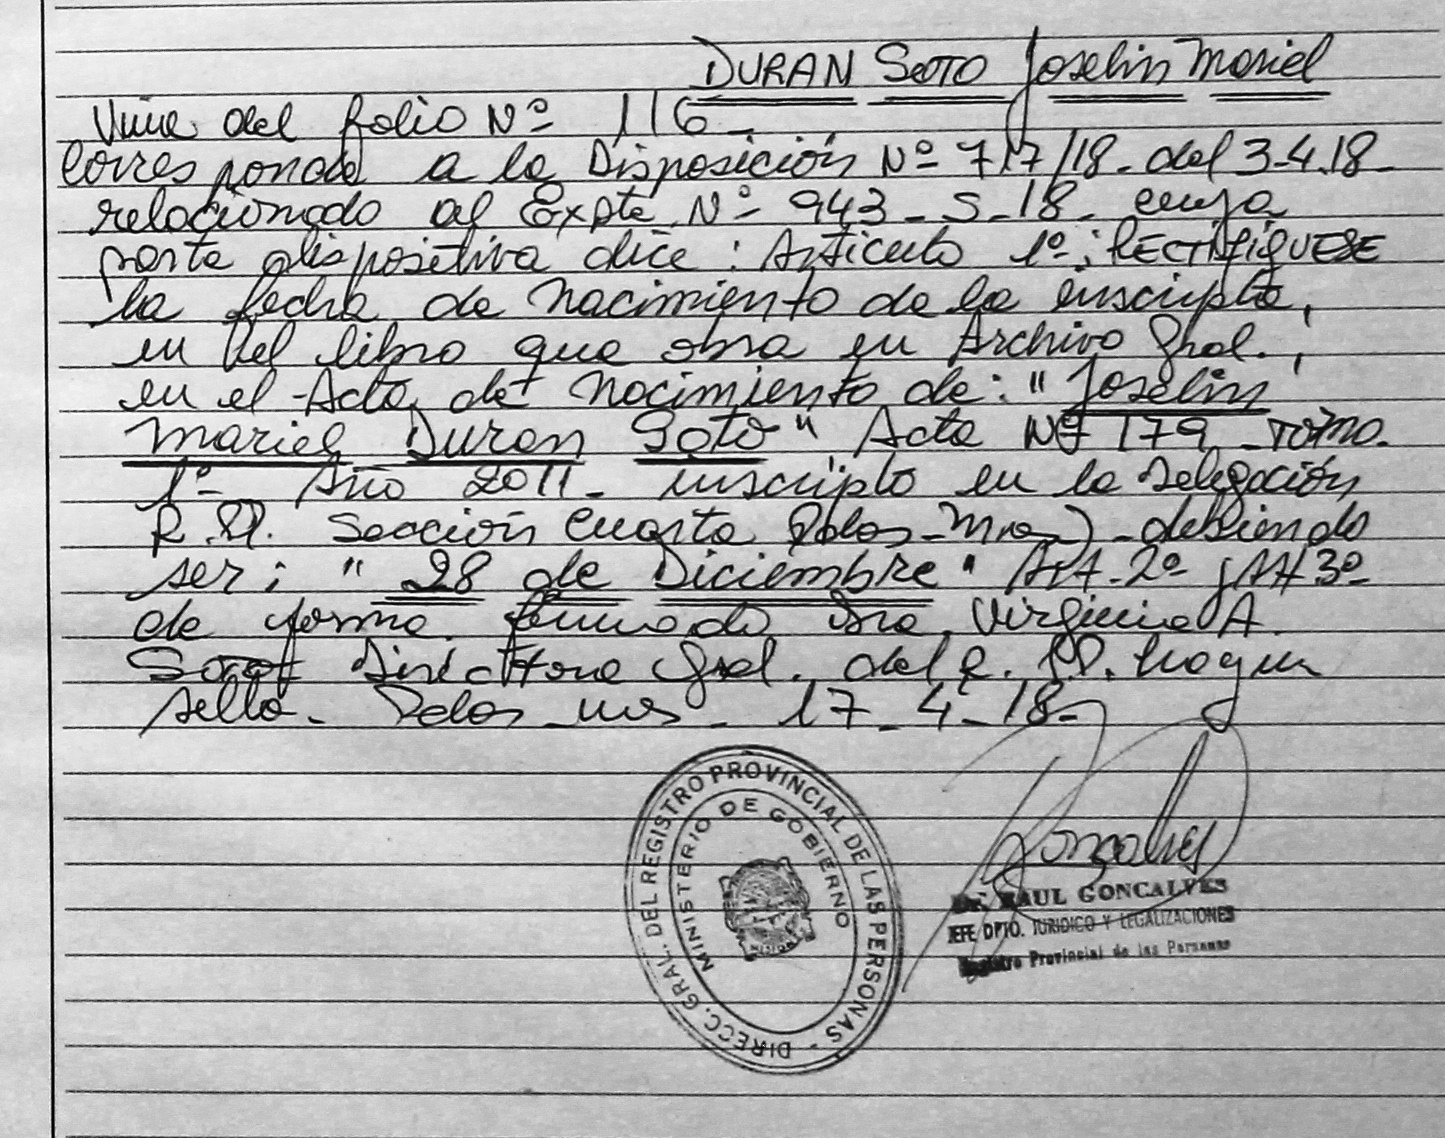 DURAN SOTO Joselin Mariel
Viene del folio Nº 116.
Corresponde a la Disposición Nº 717/18. del 3-4.18-
relacionado al Expte. Nº 943-S-18- cuya
parte dispositiva dice: Artículo 1º: RECTIFIQUESE
la fecha de nacimiento de la inscripta,
en el libro que obra en Archivo Gral.,
en el Acta de nacimiento de: "Joselin
Mariel Duran Soto" Acta Nº 179 Tomo.
1º- Año 2011- inscripto en la Delegación
R.P. Sección Cuarta Pdas-Mnes) debiendo
ser: "28 de Diciembre" Art. 2º y Art 3º
de forma. firmado Dra. Virginia A.
Directora Gral. del R.P.P. hay un
sello. Pdas mes - 17-4-18-
DIRECC. GRAL. DEL REGISTRO PROVINCIAL DE LAS PERSONAS -
MINISTERIO DE GOBIERNO
Dr. RAUL GONCALVES
JEFE DPTO. JURIDICO Y LEGALIZACIONES
Registro Provincial de las Personas